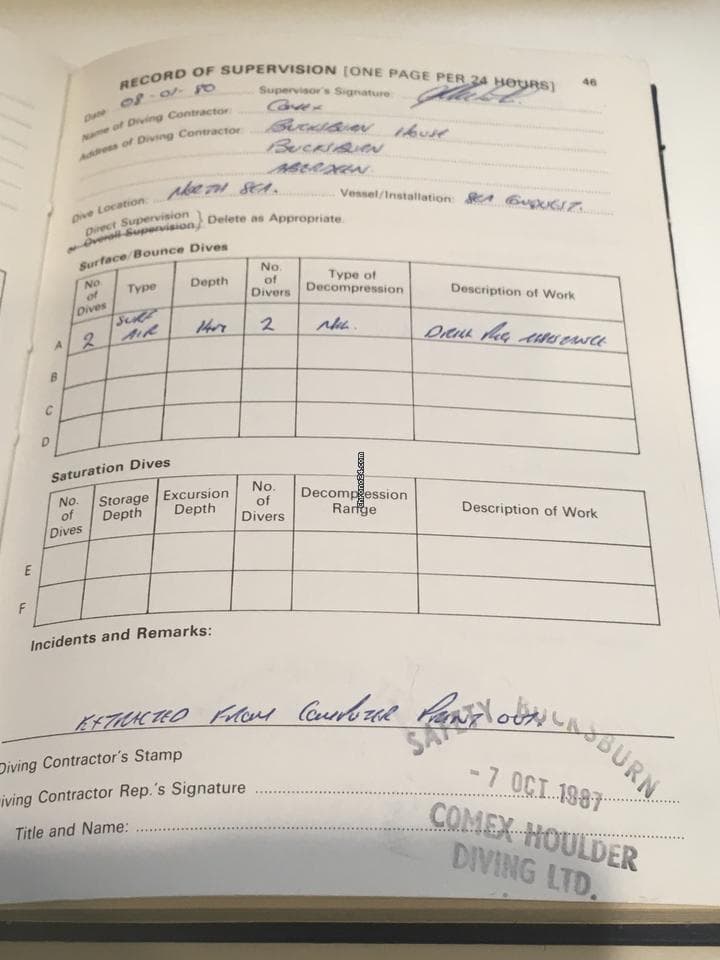 RECORD OF SUPERVISION [ONE PAGE PER 24 HOURS] 46
Date 08-01-80 Supervisor's Signature:
Name of Diving Contractor: Comex
Address of Diving Contractor: BUCKSBURN HOUSE
BUCKSBURN
ABERDEEN
Dive Location: NORTH SEA. Vessel/Installation: SEA CONQUEST.
Direct Supervision
or Overall Supervision } Delete as Appropriate.
Surface/Bounce Dives
No. of Dives Type Depth No. of Divers Type of Decompression Description of Work
A 2 SURF AIR 14m 2 NIL. DRILL RIG
B
C
D
Saturation Dives
No. of Dives Storage Depth Excursion Depth No. of Divers Decompression Range Description of Work
E
F
Chrono24.com
Incidents and Remarks:
EXTRACTED FROM COMPUTER PRINT OUT.
SAFETY BUCKSBURN
Diving Contractor's Stamp
- 7 OCT 1987
Diving Contractor Rep.'s Signature
Title and Name:
COMEX HOULDER
DIVING LTD.